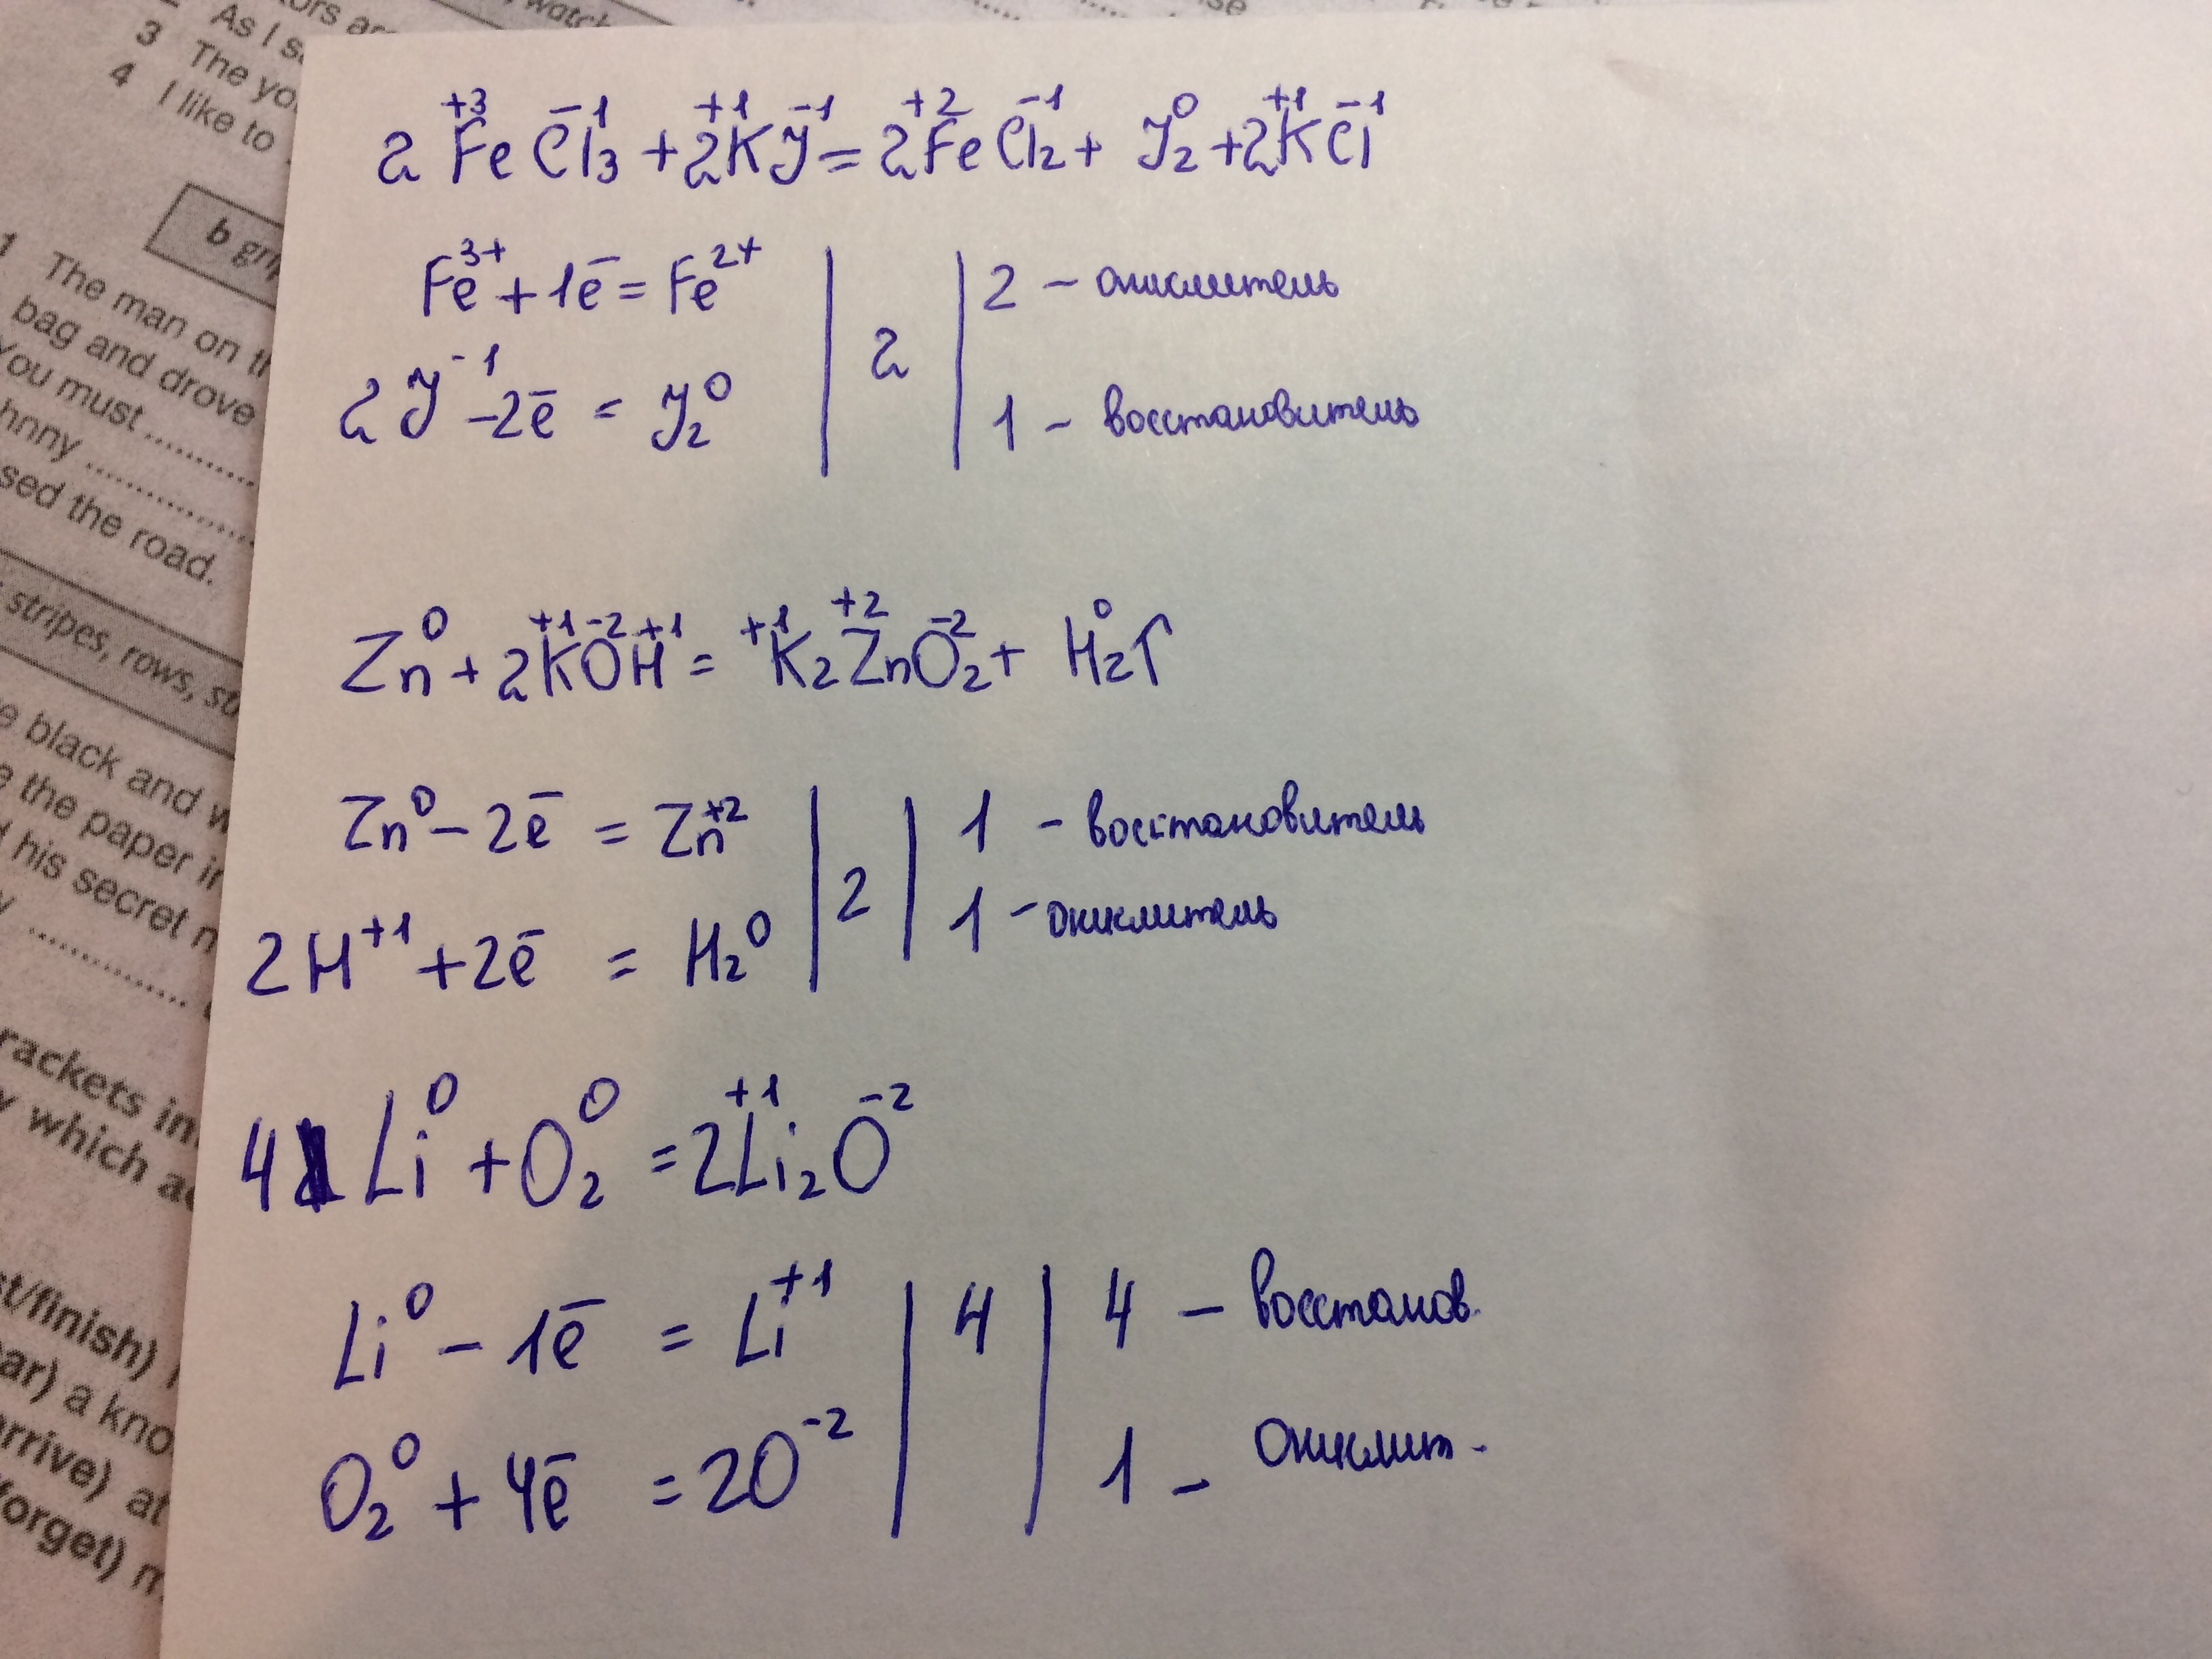 ors a
watch
As I s
3 The yo
4 I like to
b gri
1 The man on th
bag and drove
You must ..........
hnny ..............
sed the road.
stripes, rows, st
e black and w
e the paper in
his secret n
y ..............
rackets in
y which a
st/finish)
ar) a kno
arrive) at
forget) m
+3 -1 +1 -1 +2 -1 0 +1 -1
2 FeCl₃ + 2KJ = 2FeCl₂ + J₂ + 2KCl
Fe³⁺ + 1ē = Fe²⁺ | 2 | 2 – окислитель
2J⁻¹ - 2ē = J₂⁰ 1 – восстановитель
0 +1 -2 +1 +1 +2 -2 0
Zn + 2KOH = K₂ZnO₂ + H₂↑
Zn⁰ – 2ē = Zn⁺² | 2 | 1 – восстановитель
2H⁺¹ + 2ē = H₂⁰ 1 – окислитель
0 0 +1 -2
4 Li + O₂ = 2Li₂O
Li⁰ – 1ē = Li⁺¹ | 4 | 4 – восстанов.
O₂⁰ + 4ē = 2O⁻² 1 – Окислит.